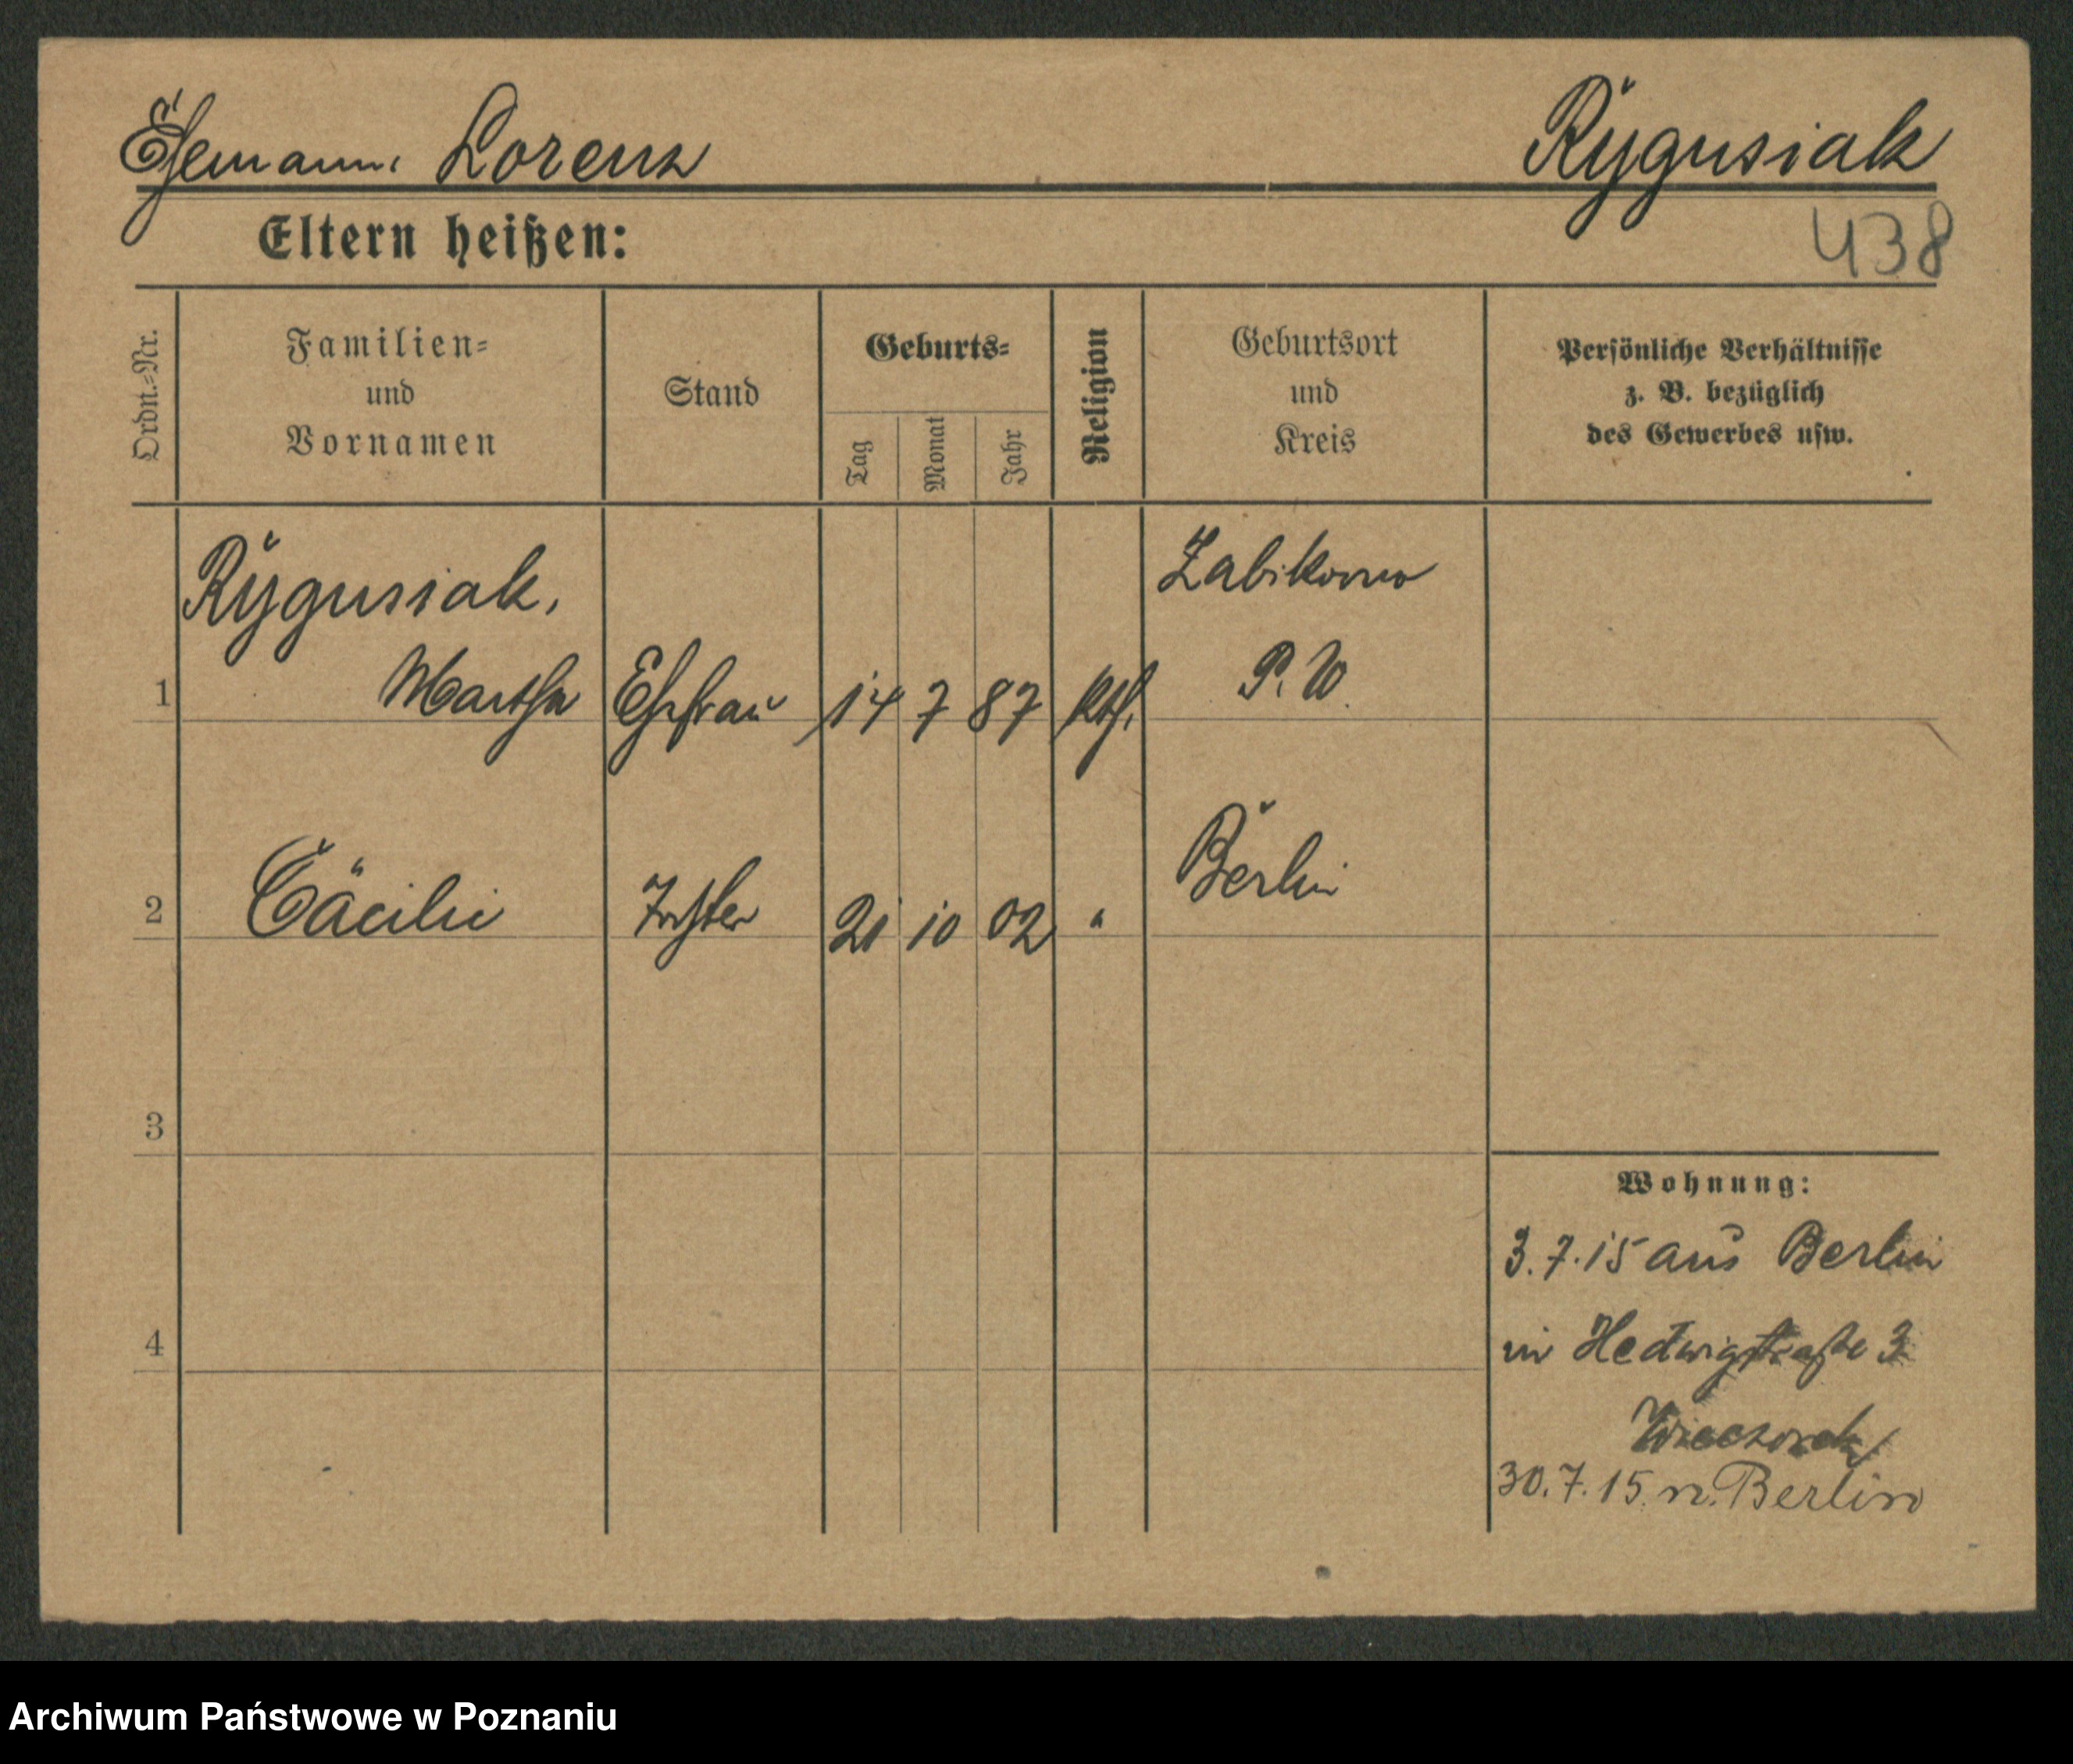 Ehemann: Lorenz Rygusiak
Eltern heißen:
438
Ordn.=Nr.
Familien=
und
Vornamen
Stand
Geburts=
Tag
Monat
Jahr
Religion
Geburtsort
und
Kreis
Persönliche Verhältnisse
z. B. bezüglich
des Gewerbes usw.
Rygusiak,
Zabikowo
1 Martha Ehefrau 14 7 87 kth. P. W.
2 Cäcilie Tochter 21 10 02 " Berlin
3
4
Wohnung:
3.7.15 aus Berlin
in Hedwigstraße 3
Wieczorek
30.7.15. n. Berlin
Archiwum Państwowe w Poznaniu